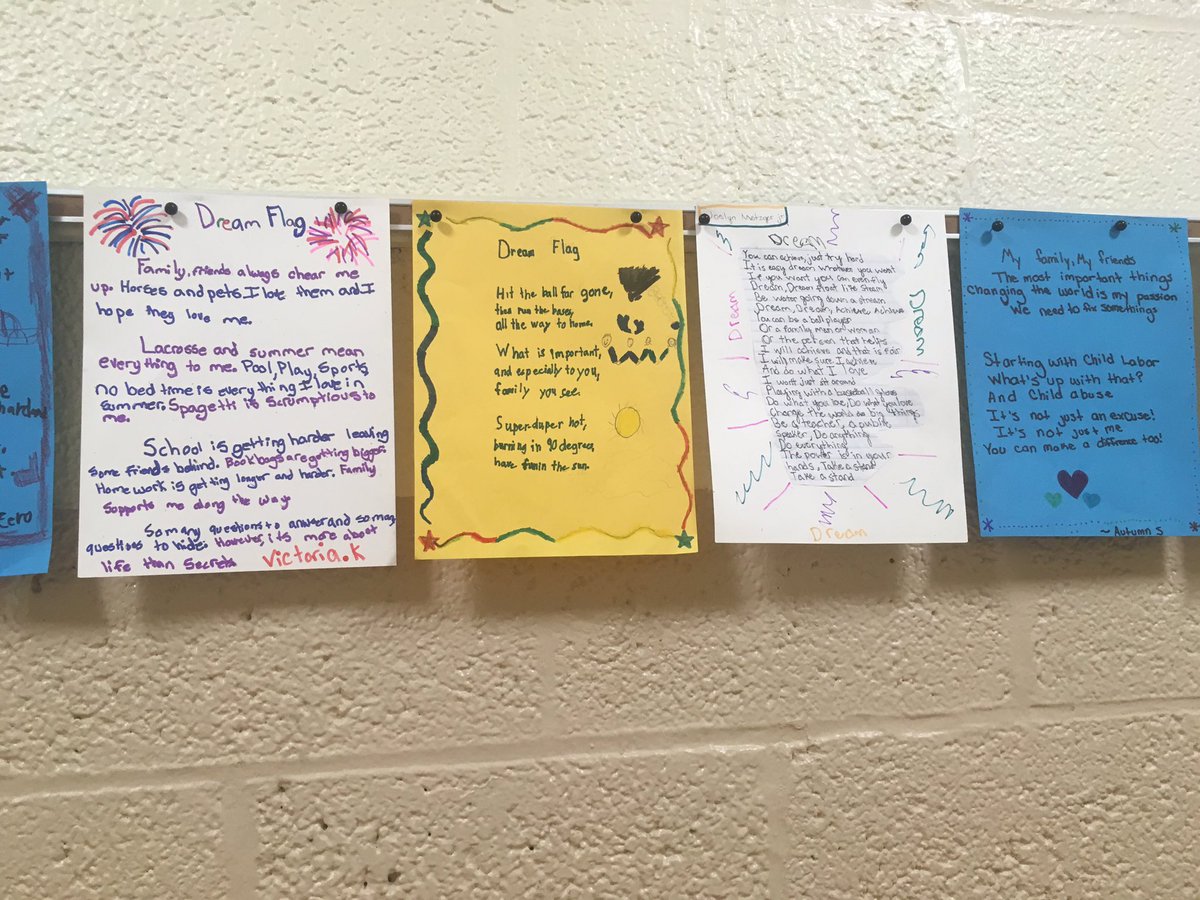 Zero
Dream Flag
Family, friends always chear me
up. Horses and pets. I love them and I
hope they love me.
Lacrosse and summer mean
everything to me. Pool, Play, Sports,
no bed time is every thing I love in
summer. Spagetti is Scrumptious to
me.
School is getting harder leaving
some friends behind. Book bags are getting bigger.
Home work is getting longer and harder. Family
Supports me along the way
So many questions to answer and so may
questions to hide. However, its more about
life than Secrets
Victoria.k
Dream Flag
Hit the ball far gone,
then run the bases,
all the way to home.
What is important,
and especially to you,
family you see.
Super-duper hot,
burning in 90 degrees,
have fun in the sun.
Dream
You can achieve, just try hard
It is easy dream whatever you want
If you want you can even fly
Dream, Dream float life steam
Be water going down a stream
Dream, Dream, Achieve, Achieve
You can be a ball player
Or a family man or woman
Or the person that helps
I will achieve and that is fair
I will make sure I achieve
And do what I love
I won't just sit around
Playing with a basketball
Do what you love, Do what you love
Change the world do big things
Be a teacher, a public
speaker, Do anything
Do everything
The power is in your
hands, Take a stand
Take a stand
Dream
Dream
Dream
My family, My friends
The most important things
Changing the world is my passion
We need to fix somethings
Starting with Child Labor
What's up with that?
And Child abuse
It's not just an excuse!
It's not just me
You can make a difference too!
~ Autumn S.